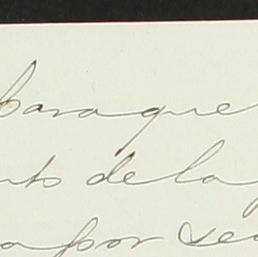 para que
nto de la
a por